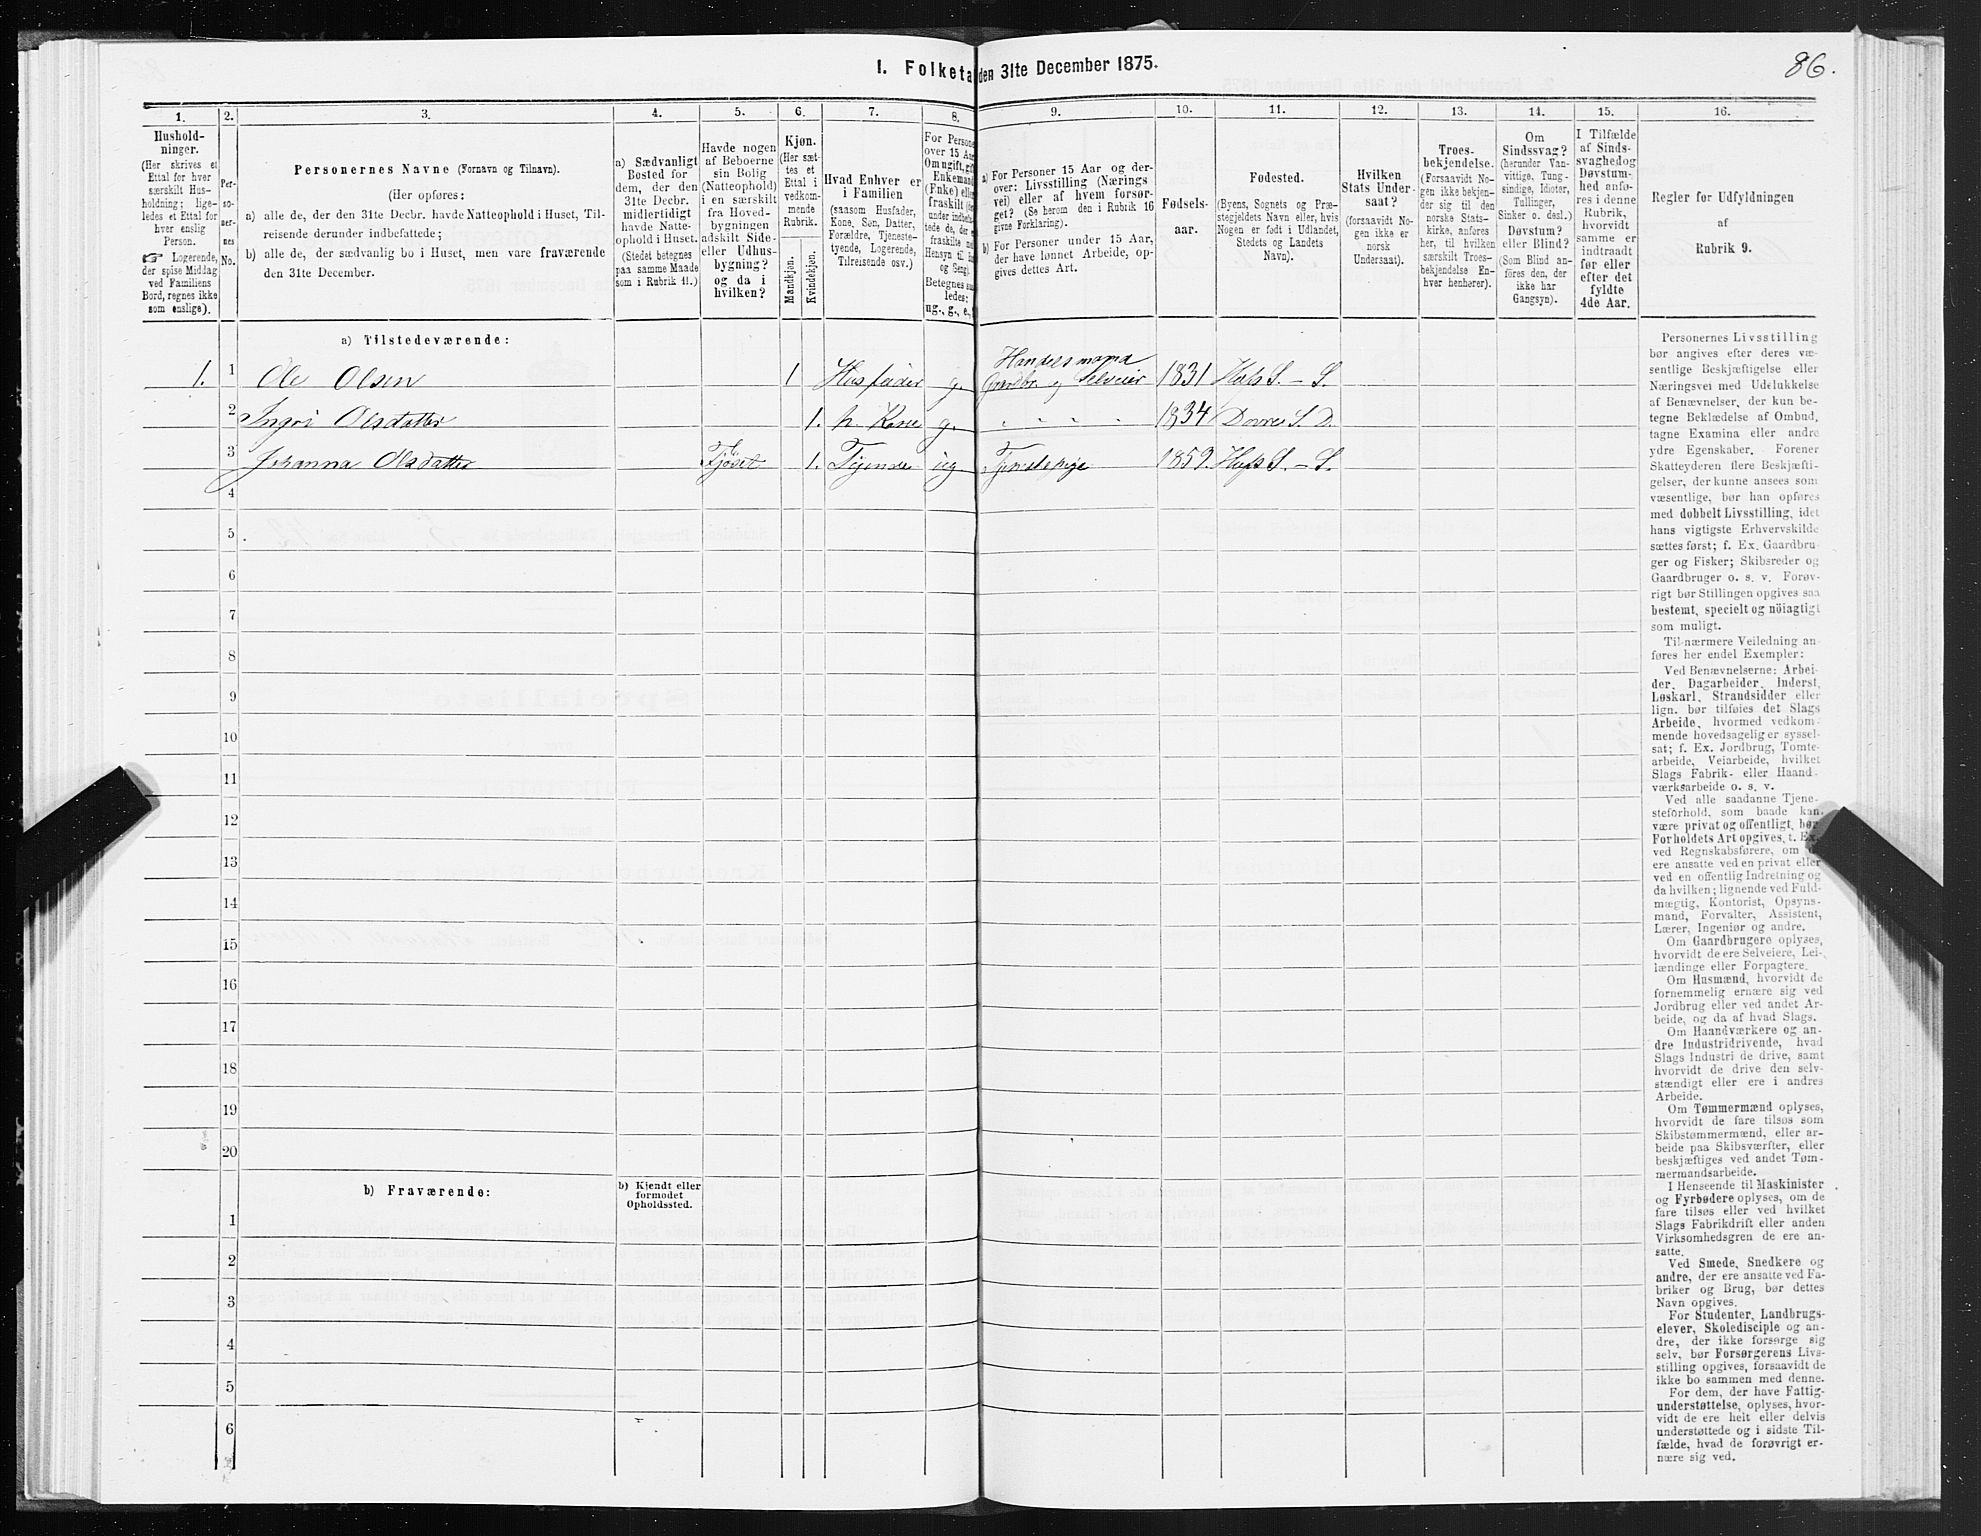 86.
I. Folketa den 31te December 1875.
1.
Hushold-
ninger.
(Her skrives et
Ettal for hver
særskilt Hus-
holdning; lige-
ledes et Ettal for
hver enslig
Person.
☞ Logerende,
der spise Middag
ved Familiens
Bord, regnes ikke
som enslige).
2.
Per-
so-
ner-
nes
No.
3.
Personernes Navne (Fornavn og Tilnavn).
(Her opføres:
a) alle de, der den 31te Decbr. havde Natteophold i Huset, Til-
reisende derunder indbefattede;
b) alle de, der sædvanlig bo i Huset, men vare fraværende
den 31te December.
4.
a) Sædvanligt
Bosted for
dem, der den
31te Decbr.
midlertidigt
havde Natte-
ophold i Huset.
(Stedet betegnes
paa samme Maade
som i Rubrik 11.)
5.
Havde nogen
af Beboerne
sin Bolig
(Natteophold)
i en særskilt
fra Hoved-
bygningen
adskilt Side-
eller Udhus-
bygning?
og da i
hvilken?
6.
Kjøn.
(Her sæt-
tes et
Ettal i
vedkom-
mende
Rubrik.
Mandkjøn.
Kvindekjøn.
7.
Hvad Enhver er
i Familien
(saasom Husfader,
Kone, Søn, Datter,
Forældre, Tjeneste-
tyende, Logerende,
Tilreisende osv.)
8.
For Persone
over 15 Aa
Om ugift, gift
Enkemand
(Enke) elle
fraskilt (de
under indbefa
tede de, der e
fraskilte
Hensyn til
og Seng).
Betegnes saa
ledes:
ug., g., e.,
9.
a) For Personer 15 Aar og der-
over: Livsstilling (Nærings
vei) eller af hvem forsør-
get? (Se herom den i Rubrik 16
givne Forklaring).
b) For Personer under 15 Aar,
der have lønnet Arbeide, op-
gives dettes Art.
10.
Fødsels-
aar.
11.
Fødested.
(Byens, Sognets og Præ-
stegjeldets Navn eller, hvis
Nogen er født i Udlandet,
Stedets og Landets
Navn).
12.
Hvilken
Stats Under-
saat?
(forsaavidt No-
gen ikke er
norsk
Undersaat).
13.
Troes-
bekjendelse.
(Forsaavidt No-
gen ikke bekjen-
der sig til den
norske Stats-
kirke, anføres
her, til hvilken
særskilt Troes-
bekjendelse En-
hver henhører).
14.
Om
Sindssvag?
(herunder Van-
vittige, Tung-
sindige, Idioter,
Tullinger,
Sinker o. desl.)
Døvstum?
eller Blind?
(Som Blind an-
føres den, der
ikke har
Gangsyn).
15.
I Tilfælde
af Sinds-
svaghed og
Døvstum-
hed anfø-
res i denne
Rubrik,
hvorvidt
samme er
indtraadt
før eller
efter det
fyldte
4de Aar.
16.
Regler for Udfyldningen
af
Rubrik 9.
a) Tilstedeværende:
1. 1 Ole Olsen 1 Husfader g. Handelsmand Gaardbr. og Selveier 1831 Hofs S. – S.
2 Ingri Olsdatter 1. h. Kone g. " " " " 1834 Dovre S. D.
3 Johanna Olsdatter Fjøset 1. Tjener ug Tjenestepige 1859. Hofs S. – S.
4
5
6
7
8
9
10
11
12
13
14
15
16
17
18
19
20
b) Fraværende:
b) Kjendt eller
formodet
Opholdssted.
1
2
3
4
5
6
Personernes Livsstilling
bør angives efter deres væ-
sentlige Beskjæftigelse eller
Næringsvei med Udelukkelse
af Benævnelser, der kun be-
tegne Beklædelse af Ombud,
tagne Examina eller andre
ydre Egenskaber. Forener
Skatteyderen flere Beskjæfti-
gelser, der kunne ansees som
væsentlige, bør han opføres
med dobbelt Livsstilling, idet
hans vigtigste Erhvervskilde
sættes først; f. Ex. Gaardbru-
ger og Fisker; Skibsreder og
Gaardbruger o. s. v. Forøv-
rigt bør Stillingen opgives saa
bestemt, specielt og nöiagtigt
som muligt.
Til nærmere Veiledning an-
føres her endel Exempler:
Ved Benævnelserne: Arbei-
der, Dagarbeider, Inderst,
Løskarl, Strandsidder eller
lign. bør tilføies det Slags
Arbeide, hvormed vedkom-
mende hovedsagelig er syssel-
sat; f. Ex. Jordbrug, Tomte-
arbeide, Veiarbeide, hvilket
Slags Fabrik- eller Haand-
værksarbeide o. s. v.
Ved alle saadanne Tjene-
steforhold, som baade kan
være privat og offentligt, bør
Forholdets Art opgives, t. Ex.
ved Regnskabsførere, om
ere ansatte ved en privat eller
ved en offentlig Indretning og
da hvilken; lignende ved Fuld-
mægtig, Kontorist, Opsyns-
mand, Forvalter, Assistent,
Lærer, Ingeniør og andre.
Om Gaardbrugere oplyses,
hvorvidt de ere Selveiere, Lei-
lændinge eller Forpagtere.
Om Husmænd, hvorvidt de
fornemmelig ernære sig ved
Jordbrug eller ved andet Ar-
beide, og da af hvad Slags.
Om Haandværkere og an-
dre Industridrivende, hvad
Slags Industri de drive, samt
hvorvidt de drive den selv-
stændigt eller ere i andres
Arbeide.
Om Tømmermænd oplyses,
hvorvidt de fare tilsøs som
Skibstømmermænd, eller ar-
beide paa Skibsværfter, eller
beskjæftiges ved andet Tøm-
mermandsarbeide.
I Henseende til Maskinister
og Fyrbødere oplyses, om de
fare tilsøs eller ved hvilket
Slags Fabrikdrift eller anden
Virksomhedsgren de ere an-
satte.
Ved Smede, Snedkere og
andre, der ere ansatte ved Fa-
briker og Brug, bør dettes
Navn opgives.
For Studenter, Landbrugs-
elever, Skoledisciple og an-
dre, der ikke forsørge sig
selv, bør Forsørgerens Livs-
stilling opgives, forsaavidt de
ikke bo sammen med denne.
For dem, der have Fattig-
understøttelse, oplyses, hvor-
vidt de ere helt eller delvis
understøttede og i sidste Til-
fælde, hvad de forøvrigt er-
nære sig ved.